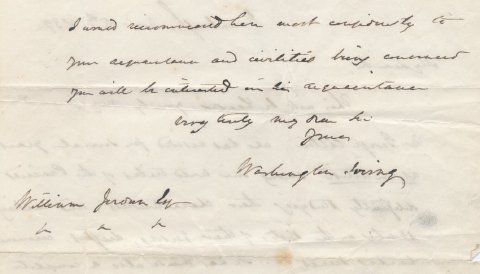 I would recommend him most confidently to
your acquaintance and civilities being convinced
you will be interested in his acquaintance
very truly my dear Sir
Yours
Washington Irving
William Jerdan Esq